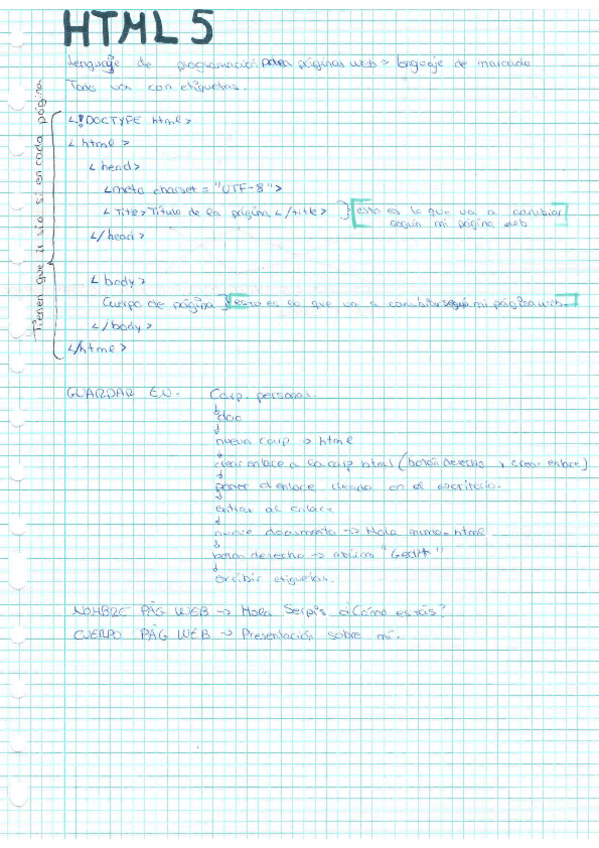 HTML 5
Lenguaje de programación para páginas web > lenguaje de marcado
Todo va con etiquetas.
Tienen que ir sio si en cada página
<!DOCTYPE html>
<html>
<head>
<meta charset = "UTF-8">
<Title> Título de la página </title> } [esto es lo que va a cambiar
según mi página web]
</head>
<body>
Cuerpo de página } [esto es lo que va a cambiar según mi página web.]
</body>
</html>
GUARDAR EN. Carp. personal.
↓
doc
↓
nueva carp → html
↓
crear enlace a la carp html (botón derecho, crear enlace)
↓
poner el enlace creado en el escritorio.
↓
entrar al enlace
↓
nuevo documento → Hola mundo.html
↓
botón derecho → abrir con "Gedit"
↓
escribir etiquetas.
NOMBRE PÁG WEB → Hola Serpis ¿Cómo estáis?
CUERPO PÁG WEB → Presentación sobre mí.